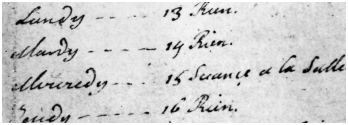 Lundy ---- 13 Rien.
Mardy ---- 14 Rien.
Mercredy ---- 15 Seance a la Salle
Jeudy ---- 16 Rien.